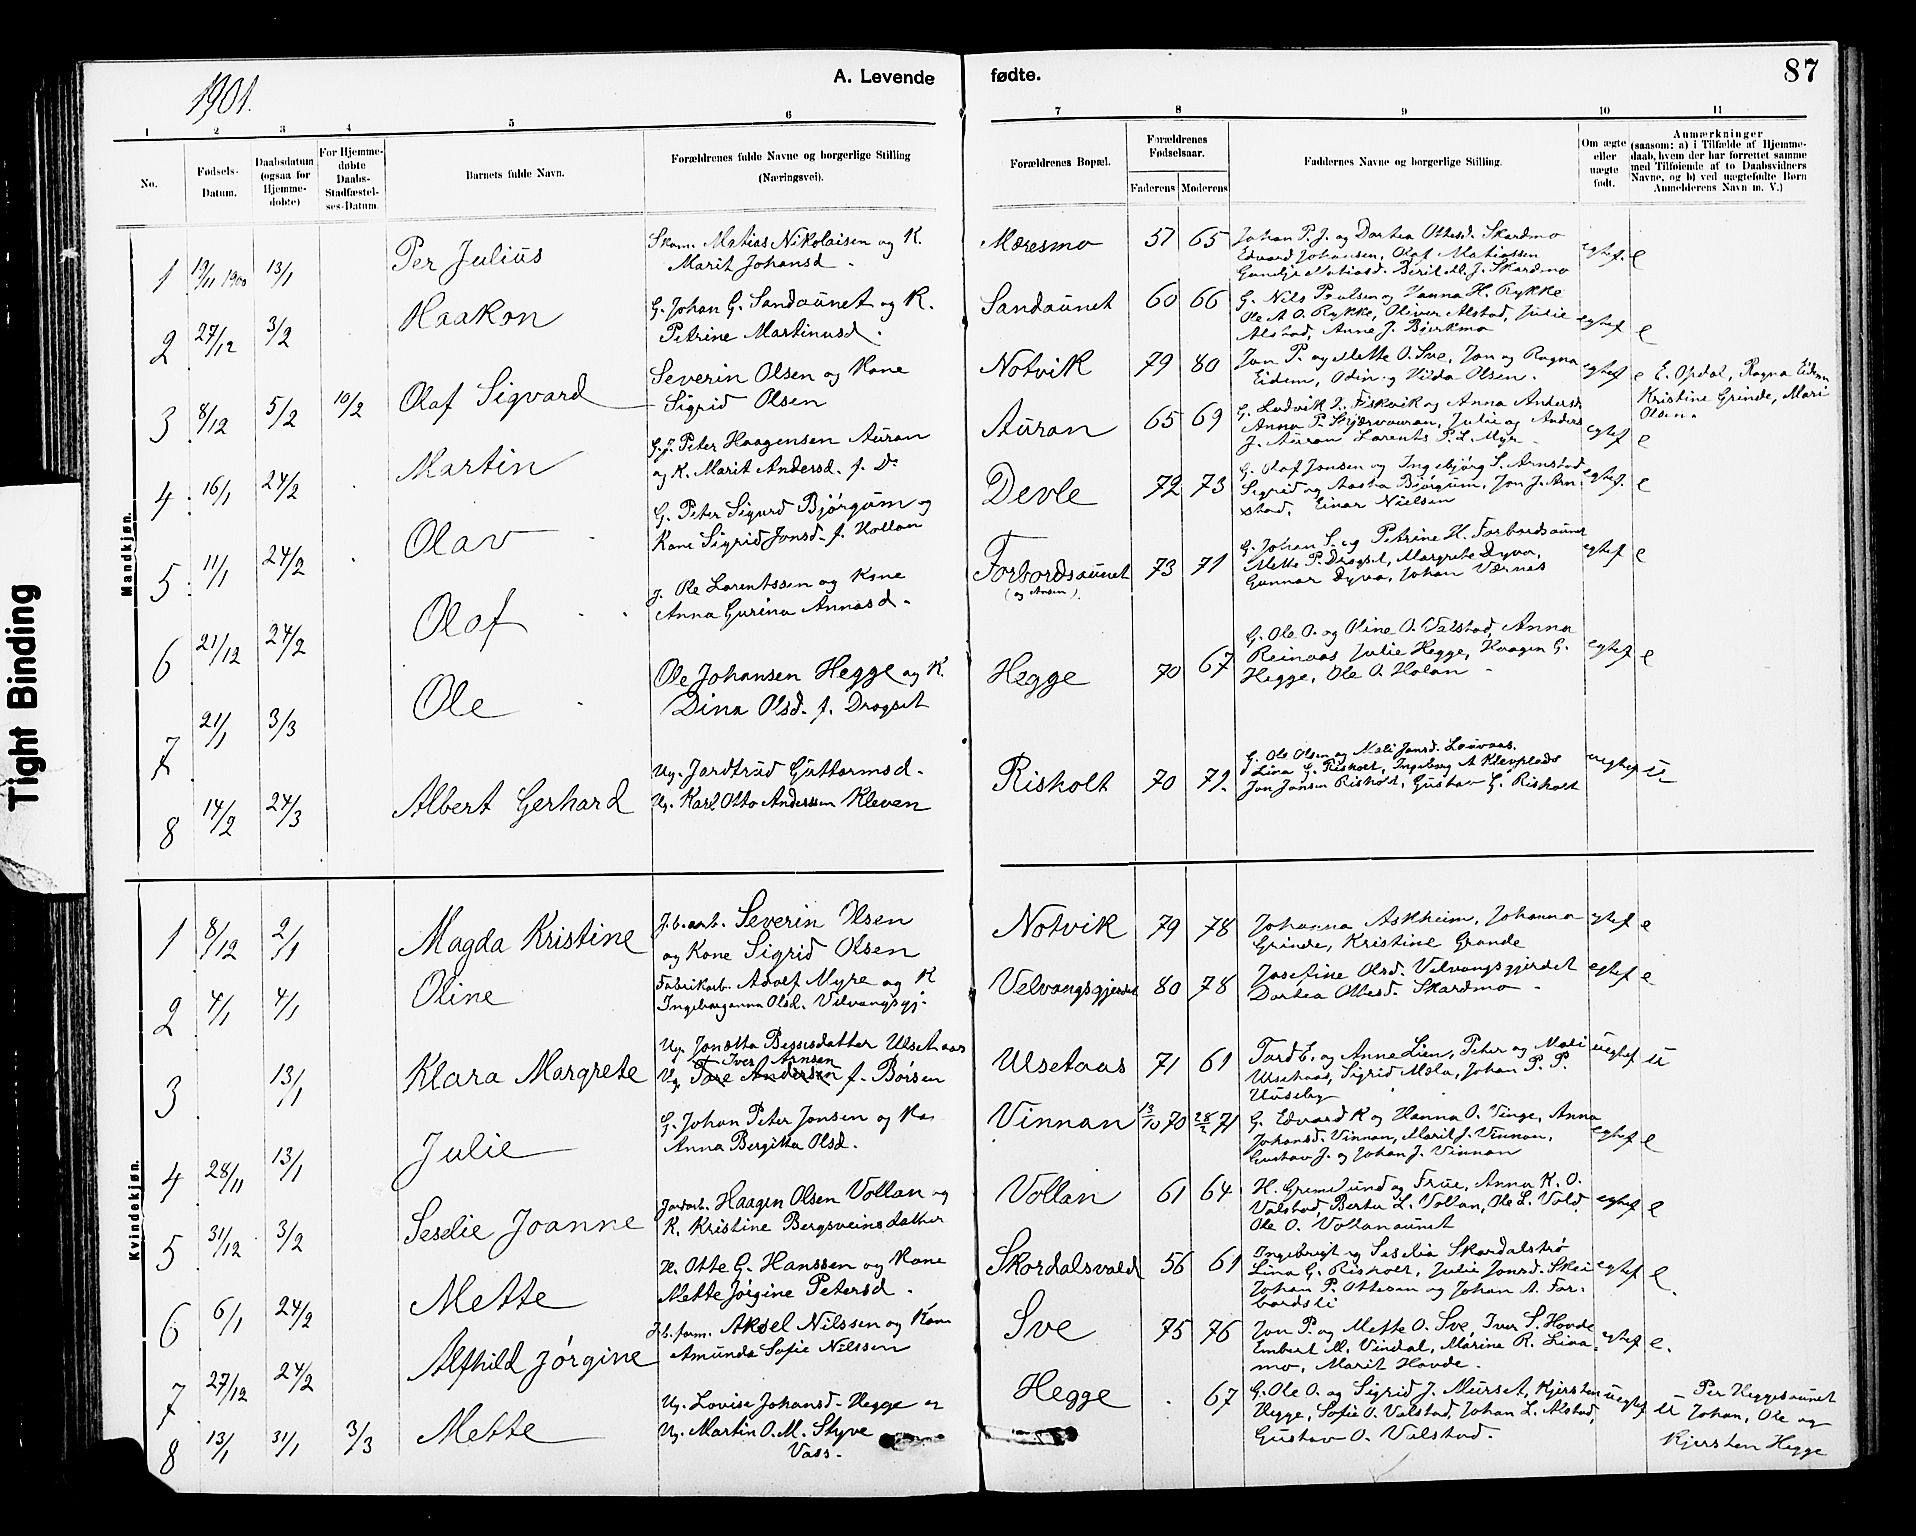 1901.
A. Levende
fødte.
87
1 2 3 4 5 6 7 8 9 10 11
No.
Fødsels-
Datum.
Daabsdatum
(ogsaa for
Hjemme-
døbte)
For Hjemme-
døbte
Daabs-
Stadfæstel-
ses-Datum.
Barnets fulde Navn.
Forældrenes fulde Navne og borgerlige Stilling
(Næringsvei).
Forældrenes Bopæl.
Forældrenes
Fødselsaar.
Faderens Moderens
Faddernes Navne og borgerlige Stilling.
Om ægte
eller
uægte
født.
Anmærkninger
(saasom: a) i Tilfælde af Hjemme-
daab, hvem der har forrettet samme
med Tilføiende af to Daabsvidners
Navne, og b) ved uægtefødte Børn
Anmelderens Navn m. V.)
Mandkjøn.
1 19/11 1900 13/1 Per Julius
Skom. Matias Nikolaisen og K.
Marit Johansd.
Mæresmo 57 65
Johan P. J. og Dortea Ottesd. Skardmo
Edvard Johansen, Olaf Matiassen
Berit M. J. Skardmo
egtef. e
2 27/12 3/2 Haakon
G. Johan G. Sandaunet og K.
Petrine Martinusd.
Sandaunet 60 66
G. Nils Poulsen og Hanna H. Rykke
Ole A. O. Rykke, Oliver Alstad, Julie
Alstad, Anne J. Bjerkmo
egtef e
3 8/12 5/2 10/2 Olaf Sigvard
Severin Olsen og Kone
Sigrid Olsen
Notvik 79 80
Jon P. og Mette O. Sve, Jon og Ragna
Eidem, Odin og Hilda Olsen.
egtef e
E. Opdal, Ragna Eidem,
Kristine Grinde, Mari
Olsen.
4 16/1 24/2 Martin
G. J. Peter Haagensen Auran
og K. Marit Andersd. f. Do
Auran 65 69
G. Ludvik L. Fiskvik og Anna Andersd.
Anna P. Skjærvauran, Julie og Anders
J. Auran Lorents P. L. Myr
egtef e
5 11/1 24/2 Olav
G. Peter Sigurd Bjørgum og
Kone Sigrid Jonsd. f. Hollan
Devle 72 73
G. Olaf Jonsen og Ingebjørg S. Arnstad
Sigrid og Aasta Bjørgum, Jon J. Arn-
stad, Einar Nielsen
egtef. e
6 21/12 24/2 Olaf
J. Ole Lorentssen og Kone
Anna Gurina Annasd.
Forbordsaunet 73 71
(og Ansen).
G. Johan S. og Petrine H. Forbordsaunet
Mette P. Dragset, Margrete Dyva,
Gunnar Dyva, Johan Værnes
egtef e
7 21/1 3/3 Ole
Ole Johansen Hegge og K.
Dina Olsd. f. Dragset
Hegge 70 67
G. Ole O. og Oline O. Valstad, Anna
Reinaas Julie Hegge, Haagen G.
Hegge, Ole O. Holan
egtef e
8 14/2 24/3 Albert Gerhard
Ug. Jardtrud Guttormsd.
Ug. Karl Otto Anderssen Kleven
Risholt 70 72.
G. Ole Olsen og Mali Jonsd. Louvaas.
Lina G. Risholt, Ingeborg A Klevplads
Jon Jonsen Risholt, Gustav G. Risholt
uegtef u
Kvindekjøn.
1 8/12 2/1 Magda Kristine
J.b.arb. Severin Olsen
og Kone Sigrid Olsen
Notvik 79 78
Johanna Askheim, Johanna
Grinde, Kristine Grande
egtef e
2 4/1 4/1 Oline
Fabrikarb. Adolf Myre og K
Ingeborganna Olsd. Velvangsgj.
Velvangsgjerdet 80 78
Josefine Olsd. Velvangsgjerdet
Dortea Ottesd. Skardmo
egtef e
3 13/1 Klara Margrete
Ug. Jonetta Bessesdatter Ulsetaas
Iver Arnsen
Ug. Tore Andersen f. Børsen
Ulsetaas 71 61
Tord E. og Anne Lien, Peter og Mali
Ulsetaas, Sigrid Mæla, Johan P. P.
Huseby
uegtef u
4 28/11 13/1 Julie
G. Johan Peter Jonsen og Ko
Anna Bergitta Olsd.
Vinnan 13/10 70 28/2 71
G. Edvard K og Hanna O. Vinge, Anna
Johansd. Vinnan, Marit J. Vinnan,
Gustav J. og Johan J. Vinnan
egtef e
5 31/12 3/2 Seselie Joanne
Jordarb. Haagen Olsen Vollan og
K. Kristine Bergsveinsdatter
Vollan 61 64
H. Gremelund og Frue, Anna K. O.
Valstad, Berta L. Vollan, Ole L. Vold,
Ole O. Vollanaunet
egtef e
6 6/1 24/2 Mette
H. Otte G. Hanssen og Kone
Mette Jørgine Petersd.
Skordalsvald 56 61
Ingebrigt og Seselia Skordalstrø
Lina G. Risholt, Julie Jonsd. Skei
Johan P. Ottesen og Johan A. For-
bordsli
egtef e.
7 27/12 24/2 Alfhild Jørgine
J.b.form. Aksel Nilssen og Kone
Amunda Sofie Nilssen
Sve 75 76
Jon P. og Mette O. Sve, Iver S. Hovde
Embert M. Vindal, Marina R. Lina-
mo, Marit Hovde.
egtef e.
8 13/1 31/1 3/3 Mette
Ug. Lovise Johansd. Hegge og
Ug. Martin O. M. Styve
Vass.
Hegge . 67
G. Ole O. og Sigrid J. Murset, Kjersten
Hegge, Sofie O. Valstad, Johan L. Alstad,
Gustav O. Valstad.
uegtef u
Per Heggesaunet
Johan, Ole og
Kjersten Hegge
Tight Binding